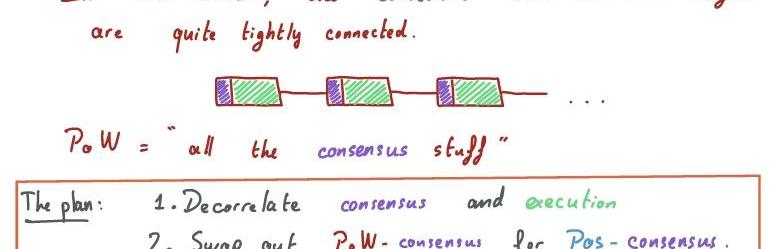 are quite tightly connected.
...
PoW = "all the consensus stuff"
The plan: 1. Decorrelate consensus and execution
2. Swap out PoW-consensus for Pos-consensus.